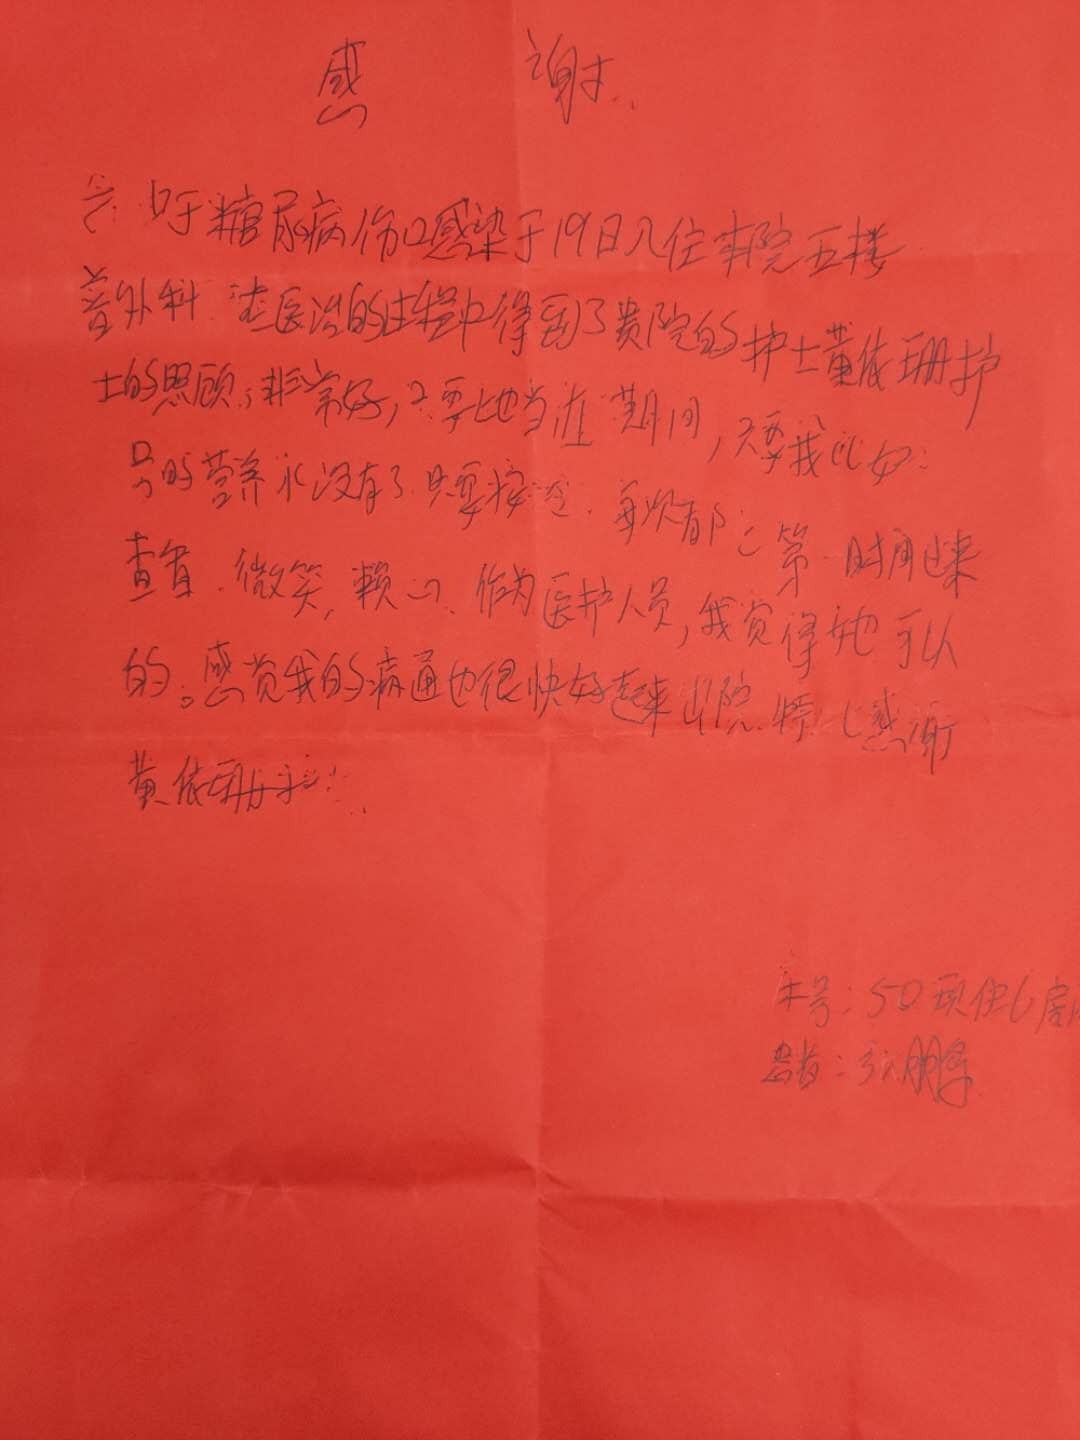 感 谢
于糖尿病伤口感染于19日入住本院五楼
普外科.在医治的过程中得到了贵院的护士黄依珊护
士的照顾,非常好,只要她当班期间,只要我
的营养水没有了只要按 .每次都 第一时间过来
查看.微笑,赖心.作为医护人员,我觉得她可以
的。感觉我的病通也很快好起来出院.特 感谢
黄依珊护士!
床号:50现住6房
患者:张朋